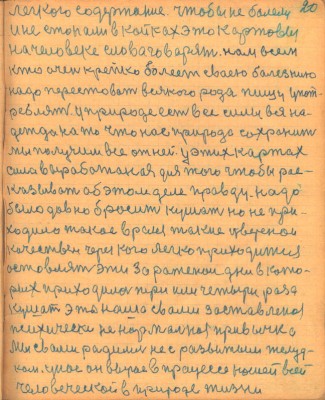 20
легкого содержание. чтобы не болели
и не стонали в койках это картовы
на человеке слова говарят. нам всем
кто очен крепко болеет своею болезнию
надо перестоват всякого рода пищу упот-
реблят. у природе ест все силы вся на-
дежда на то что нас природа сохранит
мы получим все от ней. у этих картах
сила выработаная для того чтобы рас-
сказыват об этом деле правду. надо
было давно бросит кушат но не при-
ходило такое время такие тверезой
качества через кого легко приходится
оставлят эти за ратепой дни в кото-
рых приходилос три или четыри раза
кушат это наша с вами заставленая
психически не нормалная привычка
мы с вами родилис не с развитым желуд-
ком. у нас он вырас в процессе нашей всей
человеческой в природе жизни